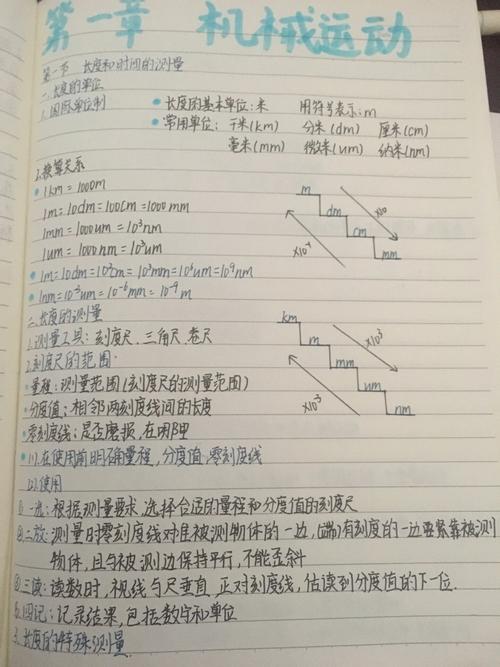 第一章 机械运动
第一节 长度和时间的测量
一、长度的单位
1.国际单位制 •长度的基本单位:米 用符号表示:m
•常用单位:千米(km) 分米(dm) 厘米(cm)
毫米(mm) 微米(um) 纳米(nm)
2.换算关系
•1km=1000m
1m=10dm=100cm=1000mm
1mm=1000um=10³nm
1um=1000nm=10³um
•1m=10dm=10²cm=10³mm=10⁶um=10⁹nm
•1nm=10⁻³um=10⁻⁶mm=10⁻⁹m
m
dm
cm
mm
×10
二、长度的测量
1.测量工具:刻度尺、三角尺、卷尺
2.刻度尺的范围:
•量程:测量范围(刻度尺的测量范围)
•分度值:相邻两刻度线间的长度
•零刻度线:是否磨损,在哪里
km
m
mm
um
nm
×10³
×10³
•(1).在使用前明确量程,分度值,零刻度线
(2).使用
①一选:根据测量要求,选择合适的量程和分度值的刻度尺
②二放:测量时零刻度线对准被测物体的一边,(端)有刻度的一边要紧靠被测
物体,且与被测边保持平行,不能歪斜
③三读:读数时,视线与尺垂直,正对刻度线,估读到分度值的下一位.
四记:记录结果,包括数字和单位
3.长度的特殊测量